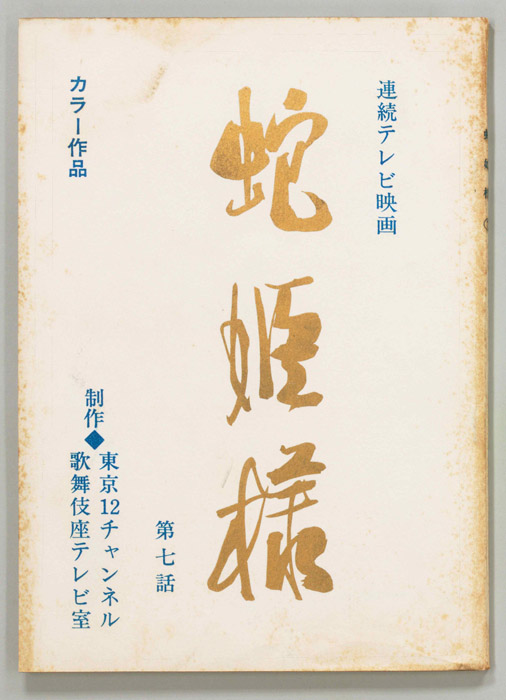 連続テレビ映画
蛇姫様
第七話
カラー作品
制作◆
東京12チャンネル
歌舞伎座テレビ室